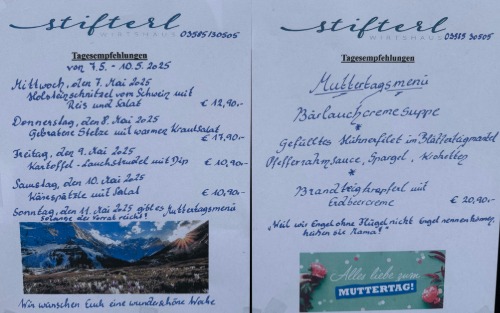 stifterl
WIRTSHAUS 03585/30505
Tagesempfehlungen
von 7.5. - 10.5.2025
Mittwoch, den 7. Mai 2025
Holsteinschnitzel vom Schwein mit
Reis und Salat € 12,90.-
Donnerstag, den 8. Mai 2025
Gebratene Stelze mit warmen Krautsalat
€ 17,90.-
Freitag, den 9. Mai 2025
Kartoffel-Lauchstrudel mit Dip € 10,90.-
Samstag, den 10. Mai 2025
Känespätzle mit Salat € 10,90.-
Sonntag, den 11. Mai 2025 gibt es Muttertagsmenü
Solange der Vorrat reicht!
Wir wünschen Euch eine wunderschöne Woche
stifterl
WIRTSHAUS 03585 30505
Tagesempfehlungen
Muttertagsmenü
Bärlauchcremesuppe
*
Gefülltes Hühnerfilet im Blätterteigmantel
Pfefferrahmsauce, Spargel, Kroketten
*
Brandteigkrapferl mit
Erdbeercreme € 20,90.-
"Weil wir Engel ohne Flügel nicht Engel nennen können,
heißen sie Mama!"
Alles liebe zum
MUTTERTAG!